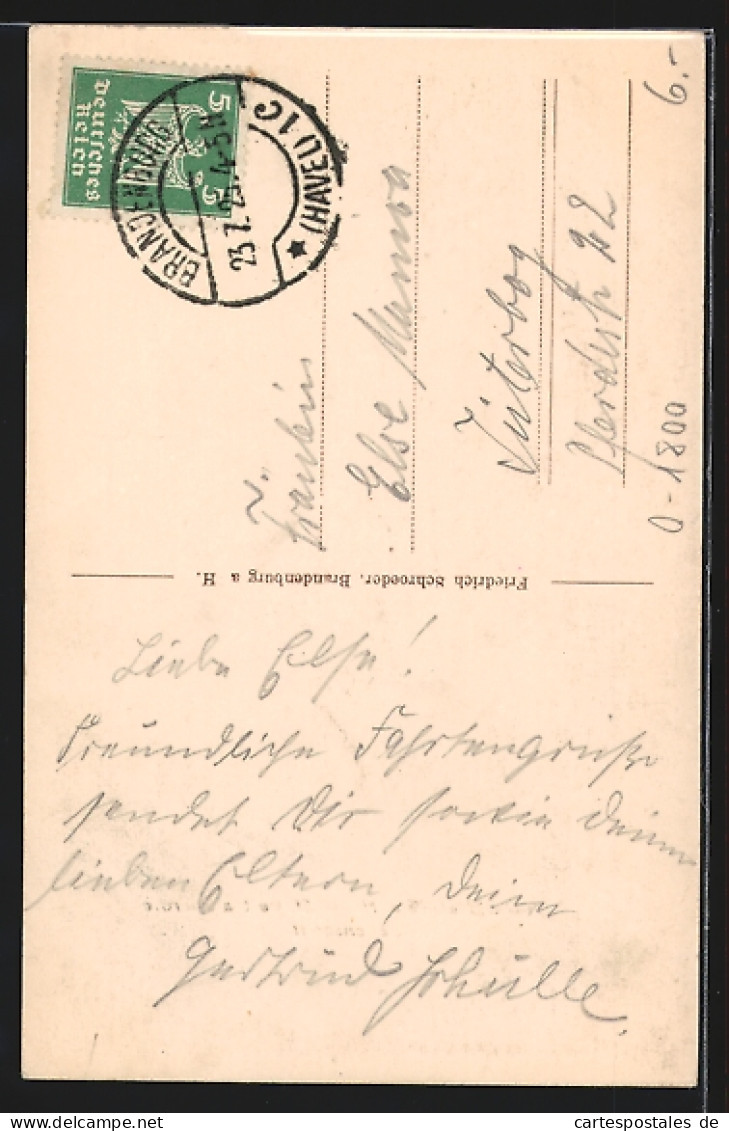 Deutsches
Reich
5 5
BRANDENBURG (HAVEL) 1C
4-5 N
6.-
Fräulein
Else
Jüterbog
Pferdestr 22
O-1800
Friedrich Schroeder, Brandenburg a H.
Liebe Else!
Freundliche Fahrtengrüße
sendet Dir sowie Deinen
lieben Eltern, Deine
Gertrud Schulle.
cartespostales
cartespostales de